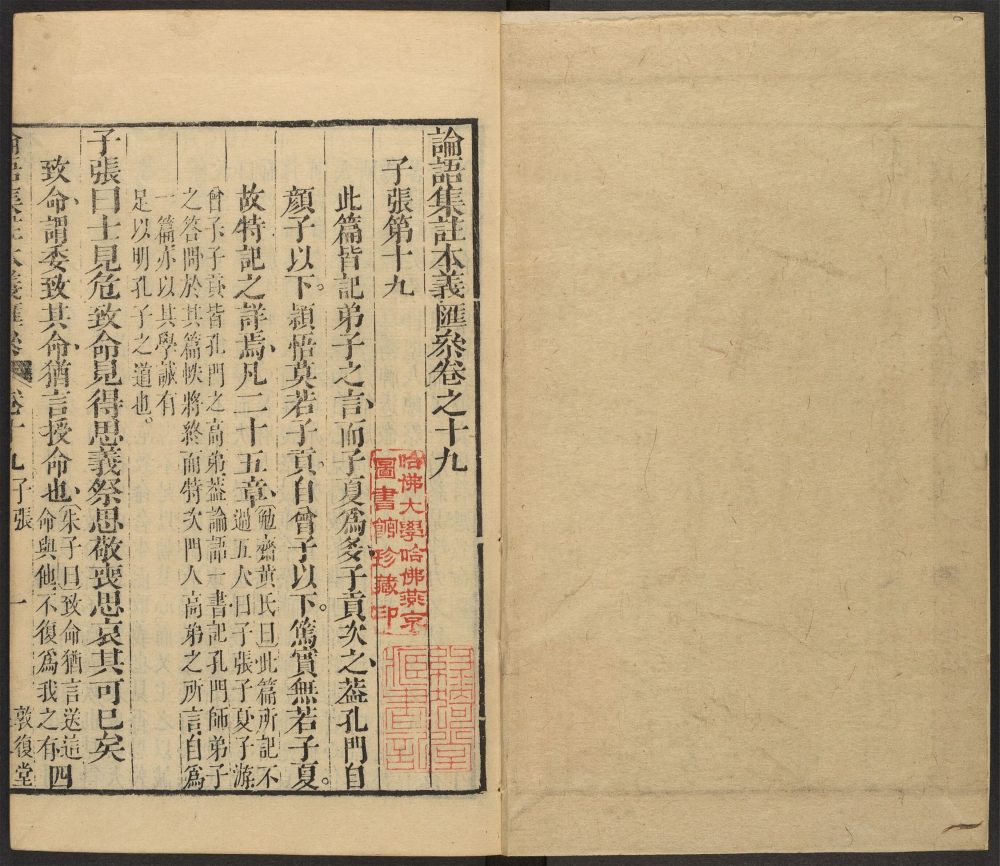 論語集註本義匯叅卷之十九
子張第十九
此篇皆記弟子之言而子夏爲多子貢次之葢孔門自
顏子以下。穎悟莫若子貢自曾子以下。篤實無若子夏。
故特記之詳焉凡二十五章
勉齋黃氏曰此篇所記不
過五人曰子張子夏子游
曾子子貢皆孔門之高弟葢論語一書記孔門師弟子
之答問於其篇帙將終而特次門人高弟之所言自爲
一篇亦以其學誠有
足以明孔子之道也。
子張曰士見危致命見得思義祭思敬喪思哀其可已矣
致命謂委致其命猶言授命也
朱子曰致命猶言送這
命與他不復爲我之有
四
論語集註本義匯叅
卷十九
子張
一
敦復堂
哈佛大學哈佛燕京
圖書館珍藏印